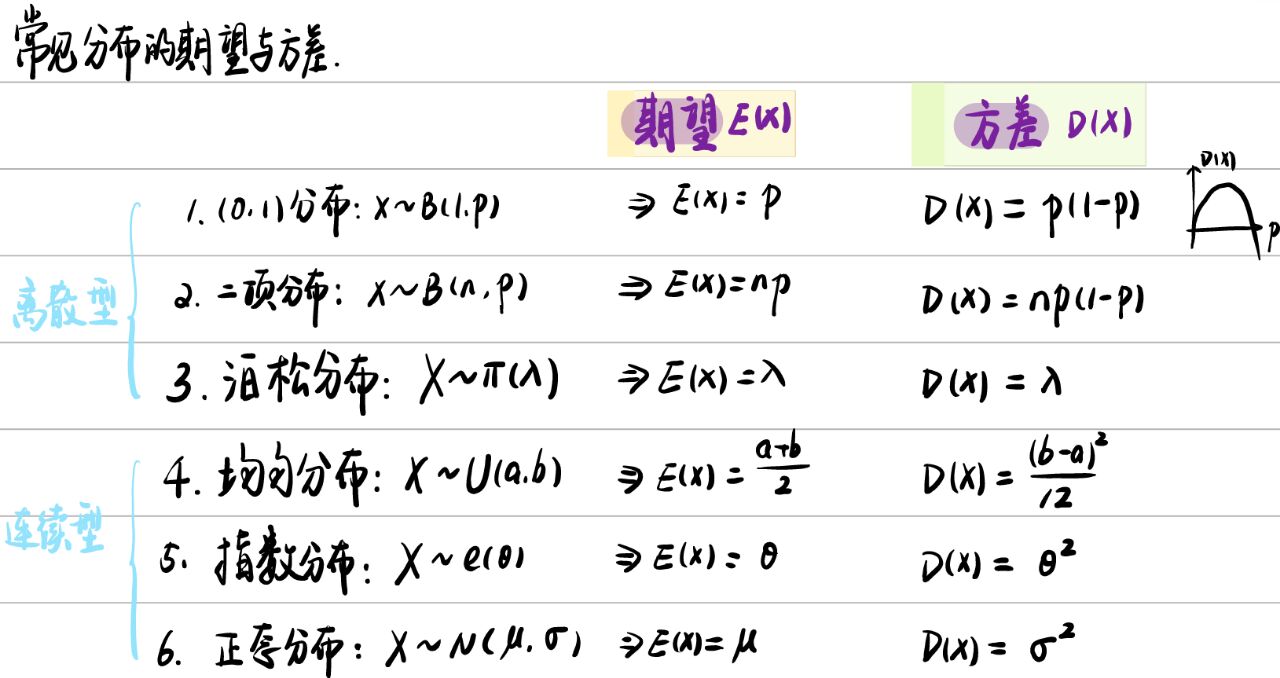 常见分布的期望与方差.
期望 E(X) 方差 D(X)
离散型
1. (0.1)分布: X~B(1.p) ⇒ E(X) = p D(X) = p(1-p)
D(X)
p
2. 二项分布: X~B(n,p) ⇒ E(X)=np D(X) = np(1-p)
3. 泊松分布: X~π(λ) ⇒ E(X) = λ D(X) = λ
连续型
4. 均匀分布: X~U(a.b) ⇒ E(X) = \frac{a+b}{2} D(X) = \frac{(b-a)^2}{12}
5. 指数分布: X~e(θ) ⇒ E(X) = θ D(X) = θ²
6. 正态分布: X~N(μ.σ) ⇒ E(X) = μ D(X) = σ²